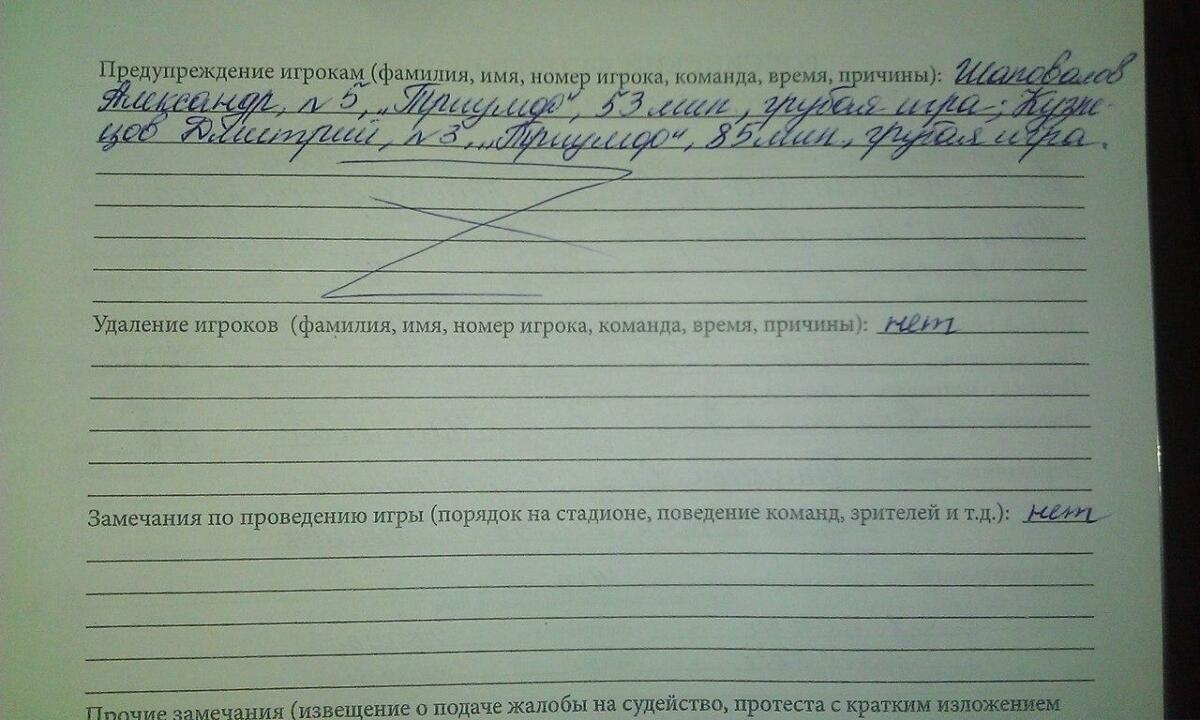 Предупреждение игрокам (фамилия, имя, номер игрока, команда, время, причины): Шаповалов
Александр, №5, „Триумф“, 53 мин, грубая игра; Кузне-
цов Дмитрий, №3, „Триумф“, 85 мин, грубая игра.
Удаление игроков (фамилия, имя, номер игрока, команда, время, причины): нет
Замечания по проведению игры (порядок на стадионе, поведение команд, зрителей и т.д.): нет
Прочие замечания (извещение о подаче жалобы на судейство, протеста с кратким изложением